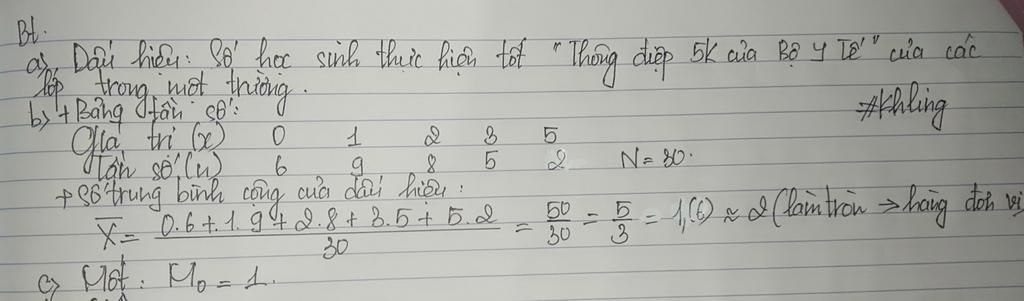 B1.
a), Dấu hiệu: Số học sinh thực hiện tốt "Thông điệp 5K của Bộ Y Tế" của các
lớp trong một trường.
b) + Bảng tần số:
#Khling
Giá trị (x) 0 1 2 3 5
Tần số (n) 6 9 8 5 2 N = 30.
+ Số trung bình cộng của dấu hiệu:
X̄ = (0.6 + 1.9 + 2.8 + 3.5 + 5.2)/30 = 50/30 = 5/3 = 1,(6) ≈ 2 (làm tròn → hàng đơn vị
c) Mốt: M₀ = 1.